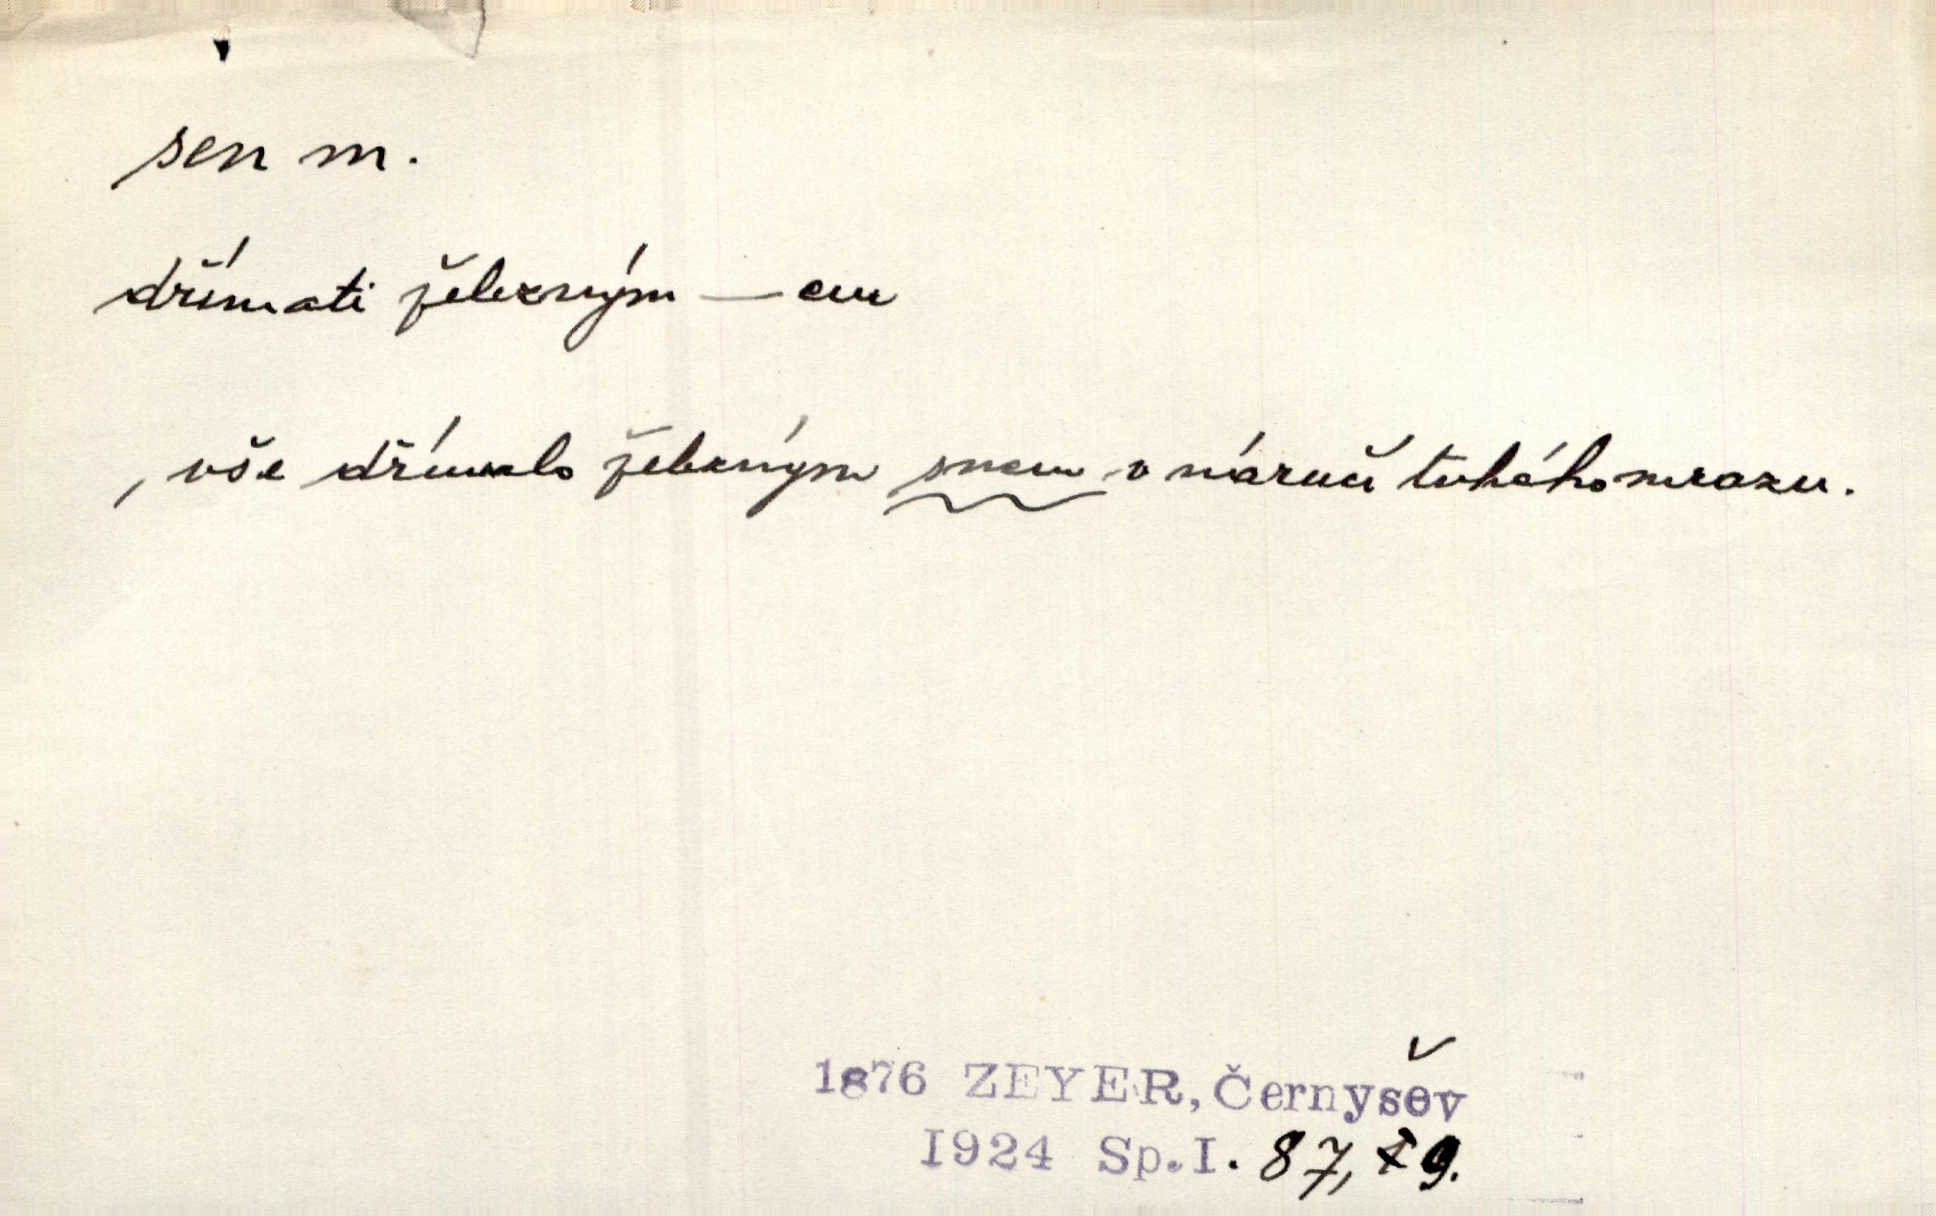 sen m.
dřímati železným — em
, vše dřímalo železným snem v náručí tuhého mrazu.
1876 ZEYER, Černyšev
1924 Sp.I. 87, 9.